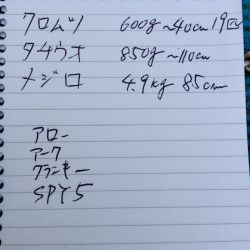 クロムツ 600g~40cm 19匹
タチウオ 850g~110cm
メジロ 4.9kg 85cm
アロー
アーク
クランキー
SPY5